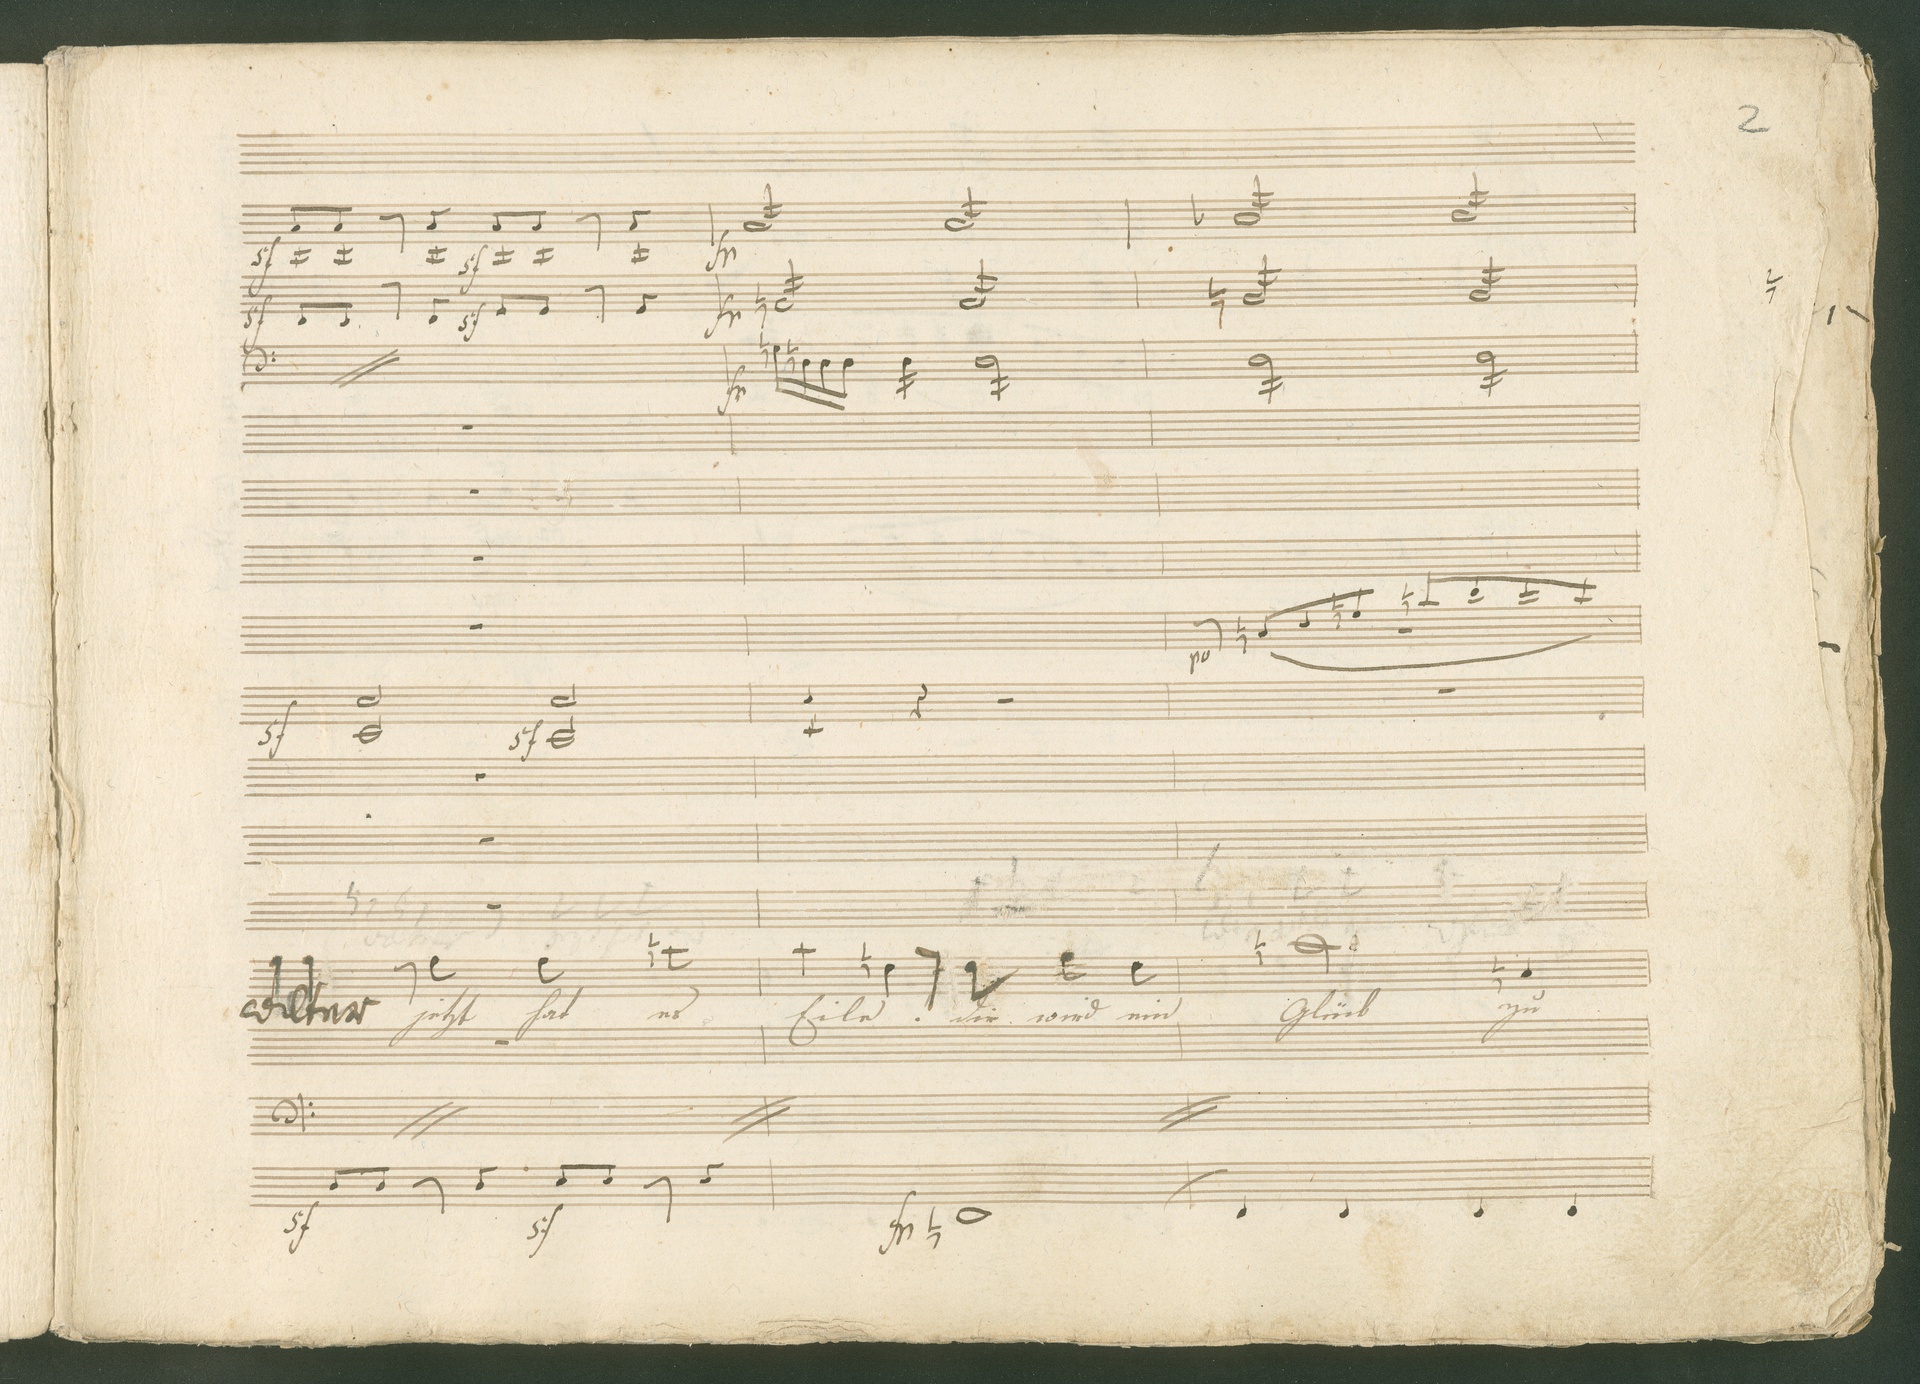 2
sf sf fp
sf sf fp
fp
po
sf sf
jetzt hat es Eile . dir wird ein Glück zu
sf sf fp